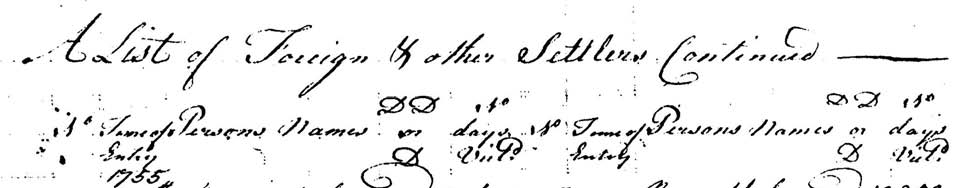 A List of Foreign & other Settlers Continued
DD No DD No
No Time of Persons Names or days No Time of Persons Names or days
Entry D Vict.d Entry D Vict.d
1755